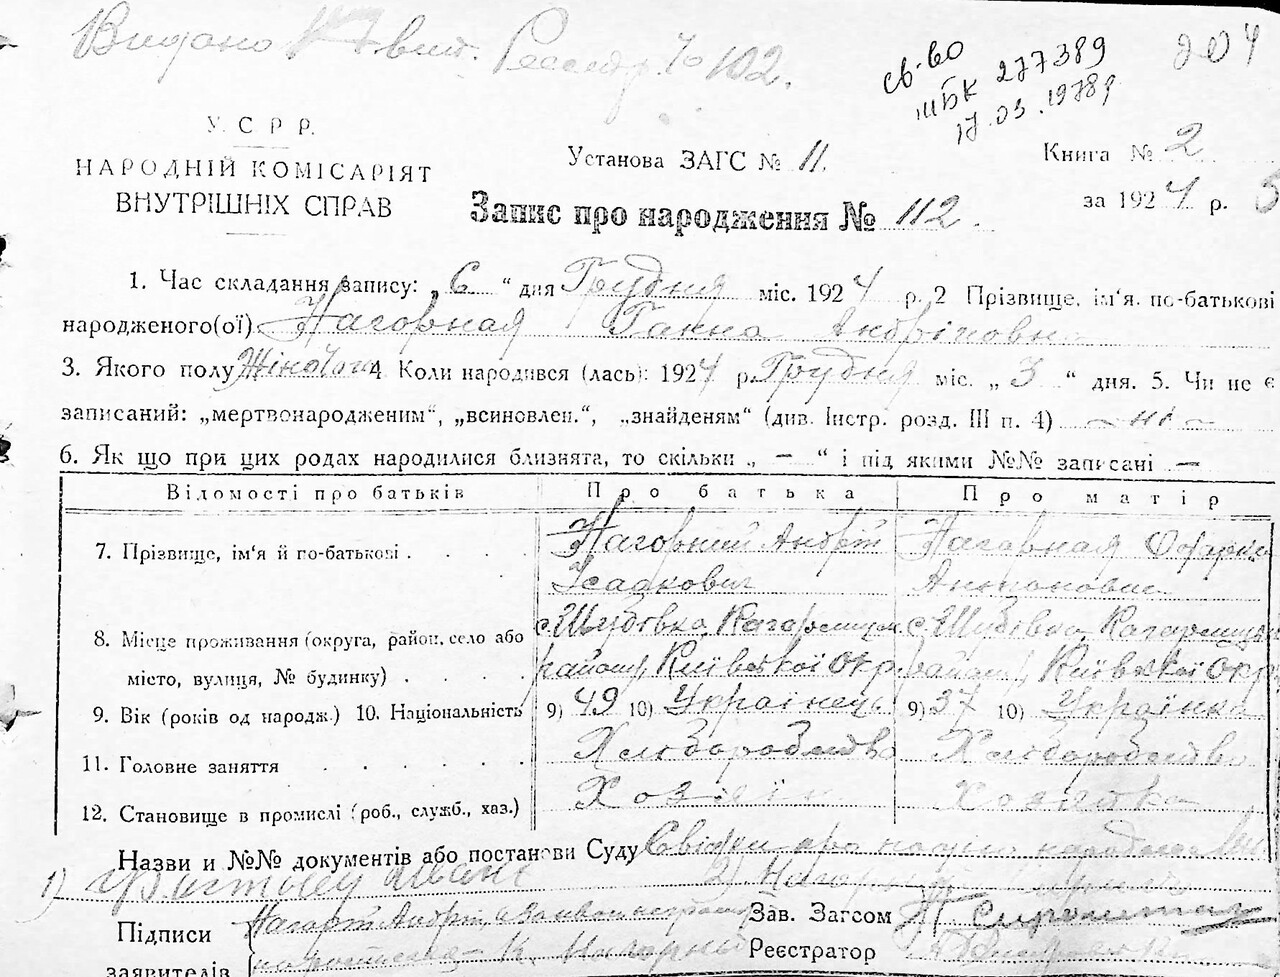 Видано вит. Реєстр. № 102.
св-во
ІІІБК 277389
17.03.1978р
204
У. С Р Р.
НАРОДНІЙ КОМІСАРІЯТ
ВНУТРІШНІХ СПРАВ
Установа ЗАГС № 11.
Книга № 2
за 1924 р.
Запис про народження № 112.
1. Час складання запису: „6“ дня Грудня міс. 1924 р. 2 Прізвище, ім'я, по-батькові
народженого(ої) Нагорная Ганна Андріїовна
3. Якого полу Жіночого 4 Коли народився (лась): 1924 р. Грудня міс. „3“ дня. 5. Чи не є
записаний: „мертвонародженим“, „всиновлен.“, „знайденям“ (див. Інстр. розд. III п. 4) – ні –
6. Як що при цих родах народилися близнята, то скільки „ — “ і під якими №№ записані —
Відомості про батьків Про батька Про матір
7. Прізвище, ім'я й по-батькові Нагорний Андрій Нагорная
Ісаакович Антоновна
8. Місце проживання (округа, район, село або с. Шубівка, Кагарлицьк. с. Шубівка, Кагарлицьк.
місто, вулиця, № будинку) району, Київської Окр. району, Київської Окр.
9. Вік (років од народж.) 10. Національність 9) 49 10) Українець 9) 37 10) Українка
11. Головне заняття Хліборобство Хліборобство
12. Становище в промислі (роб., служб., хаз.) Хозяїн Хозяйка
Назви и №№ документів або постанови Суду
1) Іванс 2) Нагорн
Підписи Нагорн Андрій Зав. Загсом
заявителів Реєстратор